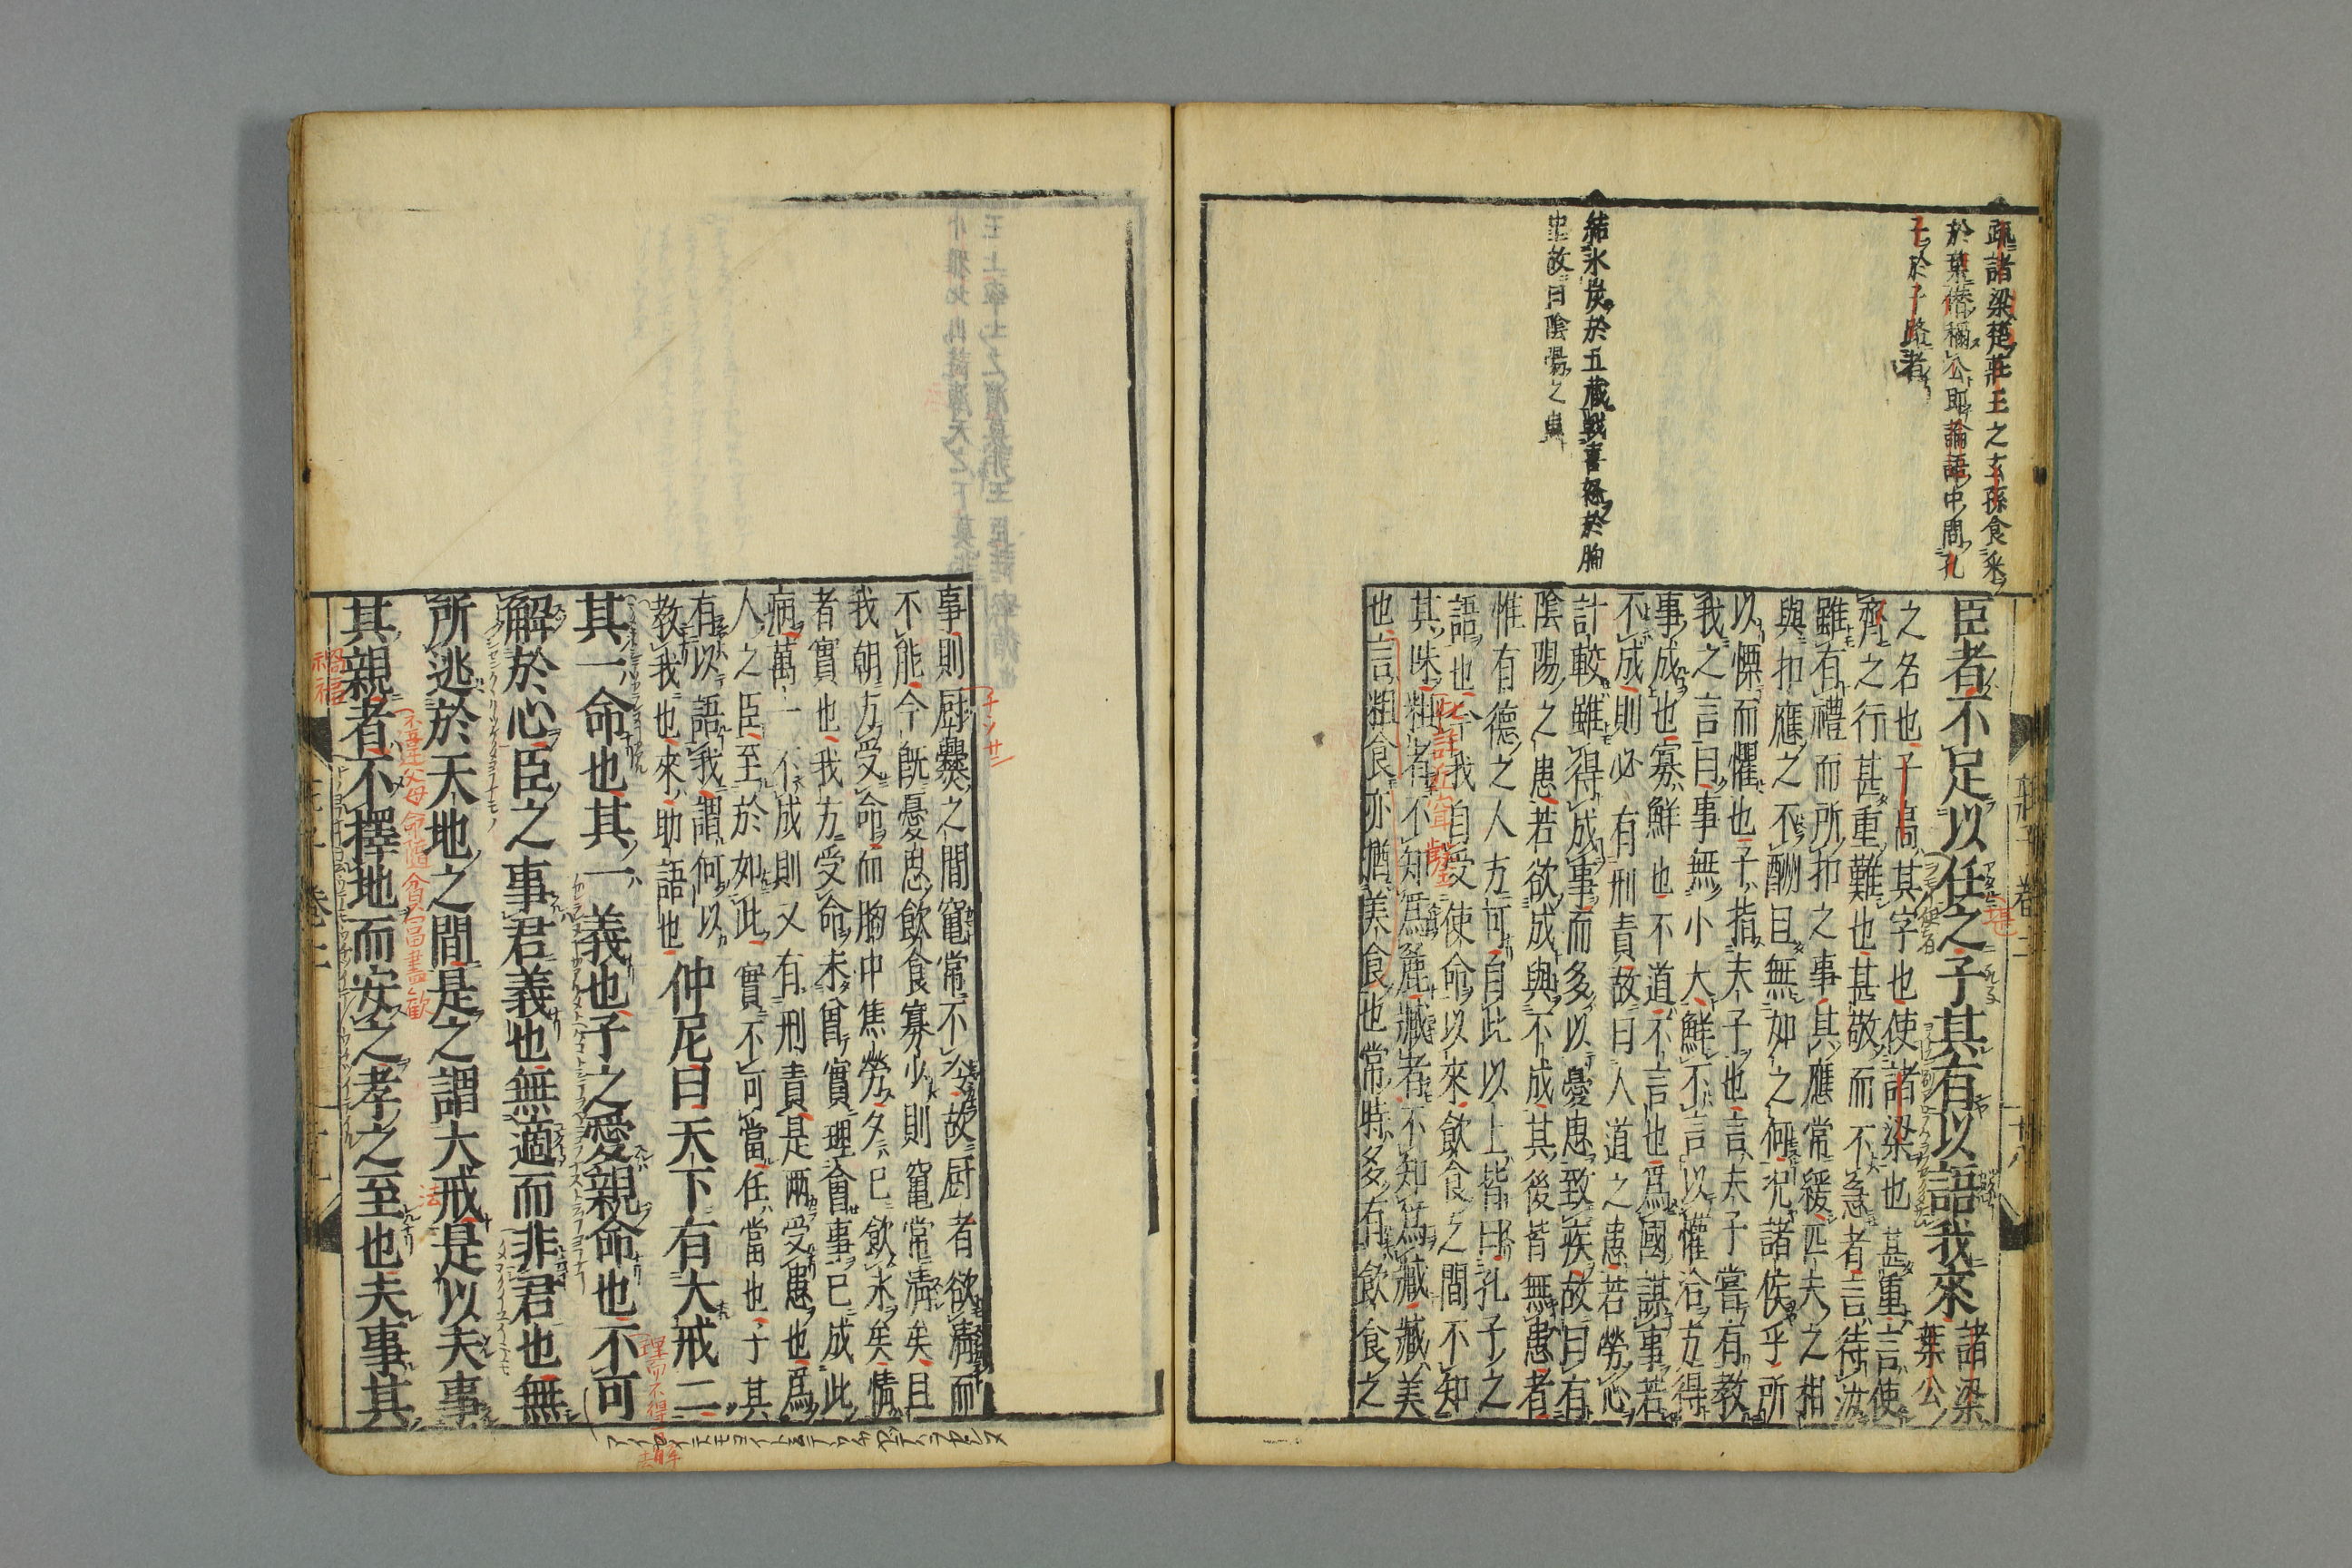 疏諸梁楚莊王之玄孫食釆
於葉僭稱公即論語中問孔
子於子路者
結氷炭於五藏戰喜怒於胸
中故曰陰陽之患
臣者不足以任之子其有以語我來諸梁葉公
之名也子高其字也使諸梁也甚重言使
齊之行甚重難也甚敬而不急者言待汝
雖有禮而所扣之事其應常緩匹夫之相
與扣應之不酬且無如之何况諸侯乎所
以慄而懼也子指夫子也言夫子嘗有教
我之言曰事無小大鮮不言以懽洽方得
事成也寡鮮也不道不言也爲國謀事若
不成則必有刑責故曰人道之患若勞心
計較雖得成事而多以憂患致疾故曰有
陰陽之患若欲成與不成其後皆無患者
惟有德之人方可自此以上皆曰孔子之
語也今我自受使命以來飲食之間不知
其味粗者不知爲麄臧者不知爲臧臧美
也言粗食亦猶美食也常時多有飲食之
事則厨爨之間竈常不冷故厨者欲淸而
不能今旣憂思飲食寡少則竈常淸矣且
我朝方受命而胸中焦勞夕已飲氷矣情
者實也我方受命未曾實理會事已成此
病萬一不成則又有刑責是兩受患也爲
人之臣至於如此實不可當任當也子其
有以語我謂何以
教我也來助語也仲尼曰天下有大戒二
其一命也其一義也子之愛親命也不可
解於心臣之事君義也無適而非君也無
所逃於天地之間是之謂大戒是以夫事
其親者不擇地而安之孝之至也夫事其